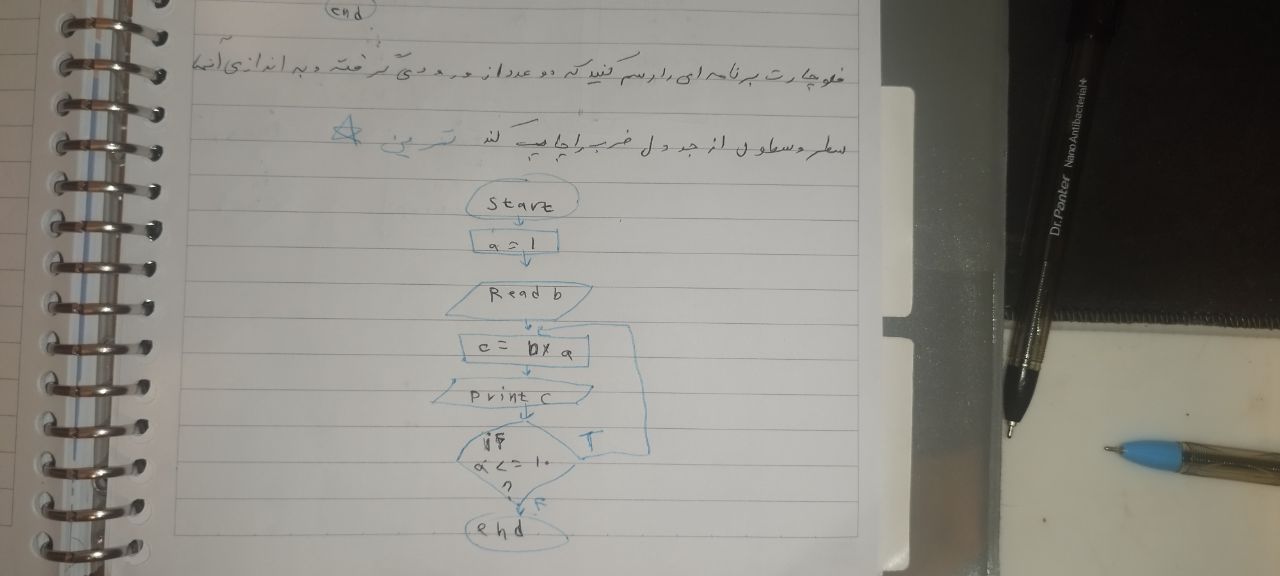 end
فلوچارت برنامه ای را رسم کنید که دو عدد از ورودی گرفته و به اندازی آنها
سطر و ستون از جدول ضرب را چاپ کند تمرین
Start
a = 1
Read b
c = b x a
print c
if
a <= 10
?
T
F
end
Dr.Panter NanoAntibacterial+